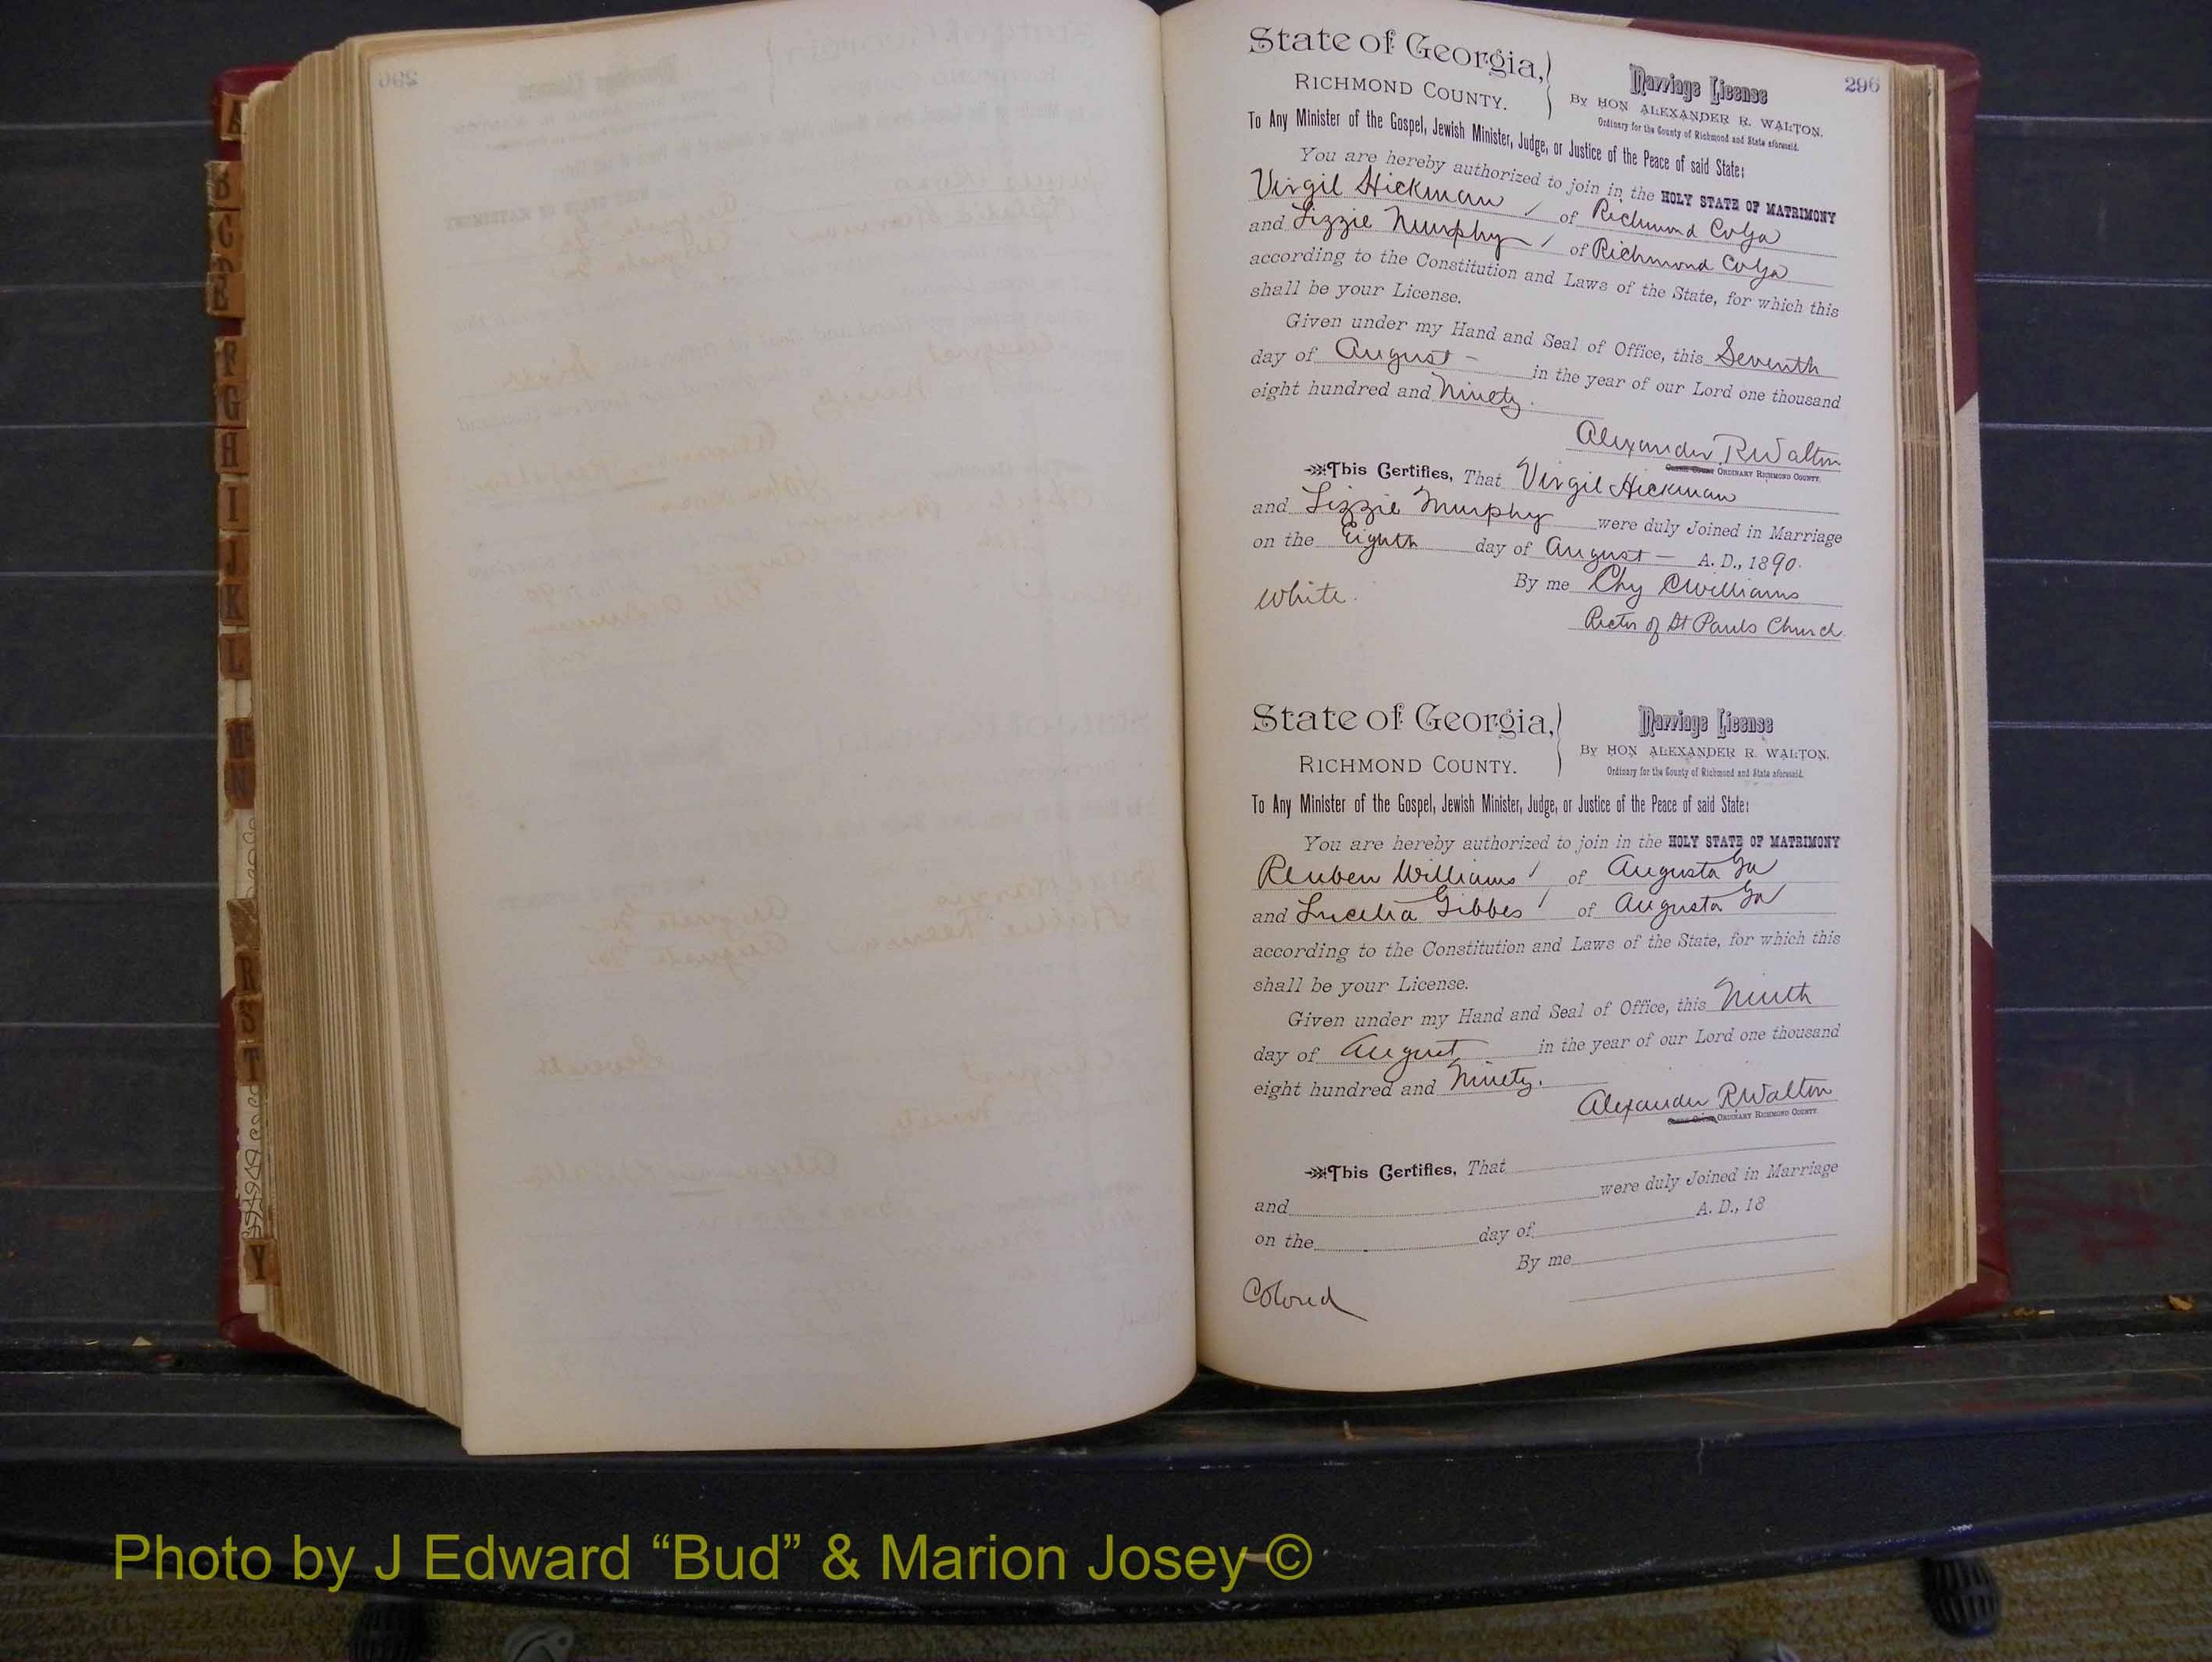 296
State of Georgia,
RICHMOND COUNTY.
Marriage License
By HON ALEXANDER R. WALTON.
Ordinary for the County of Richmond and State aforesaid.
To Any Minister of the Gospel, Jewish Minister, Judge, or Justice of the Peace of said State:
You are hereby authorized to join in the HOLY STATE OF MATRIMONY
Virgil Hickman of Richmond Co Ga
and Lizzie Murphy of Richmond Co Ga
according to the Constitution and Laws of the State, for which this
shall be your License.
Given under my Hand and Seal of Office, this Seventh
day of August in the year of our Lord one thousand
eight hundred and Ninety.
Alexander R Walton
ORDINARY RICHMOND COUNTY.
This Certifies, That Virgil Hickman
and Lizzie Murphy were duly Joined in Marriage
on the Eighth day of August A. D., 1890.
By me Chy C Williams
White.
Rector of St Pauls Church.
State of Georgia,
RICHMOND COUNTY.
Marriage License
By HON ALEXANDER R. WALTON.
Ordinary for the County of Richmond and State aforesaid.
To Any Minister of the Gospel, Jewish Minister, Judge, or Justice of the Peace of said State:
You are hereby authorized to join in the HOLY STATE OF MATRIMONY
Reuben Williams of Augusta Ga
and Lucelia Gibbes of Augusta Ga
according to the Constitution and Laws of the State, for which this
shall be your License.
Given under my Hand and Seal of Office, this Ninth
day of August in the year of our Lord one thousand
eight hundred and Ninety.
Alexander R Walton
ORDINARY RICHMOND COUNTY.
This Certifies, That
and were duly Joined in Marriage
on the day of A. D., 18
By me
Colored
A
B
C
F
G
H
I
J
K
L
N
R
S
T
Y
Photo by J Edward “Bud” & Marion Josey ©